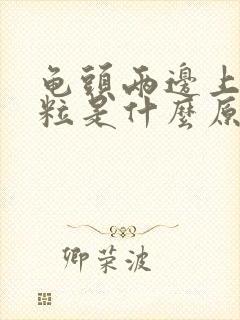 龟頭兩邊上
粒是什麼原
卿荣波